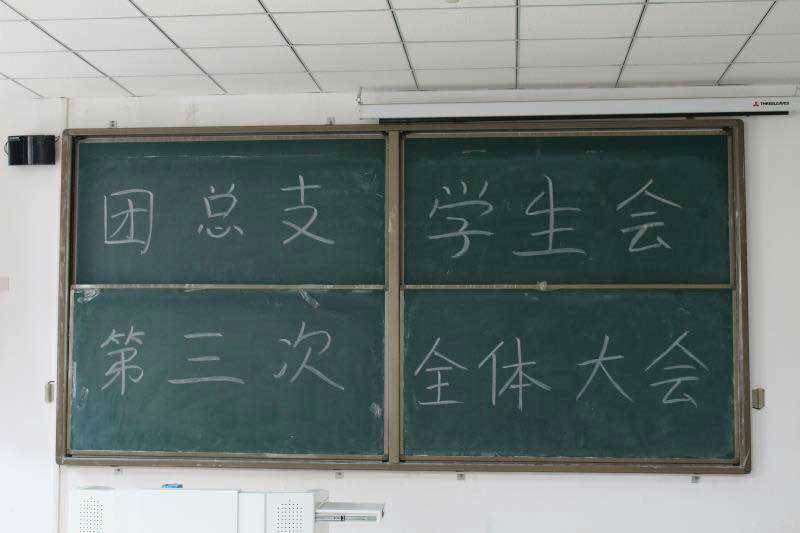 THREELEAVES
团总支 学生会
第三次 全体大会